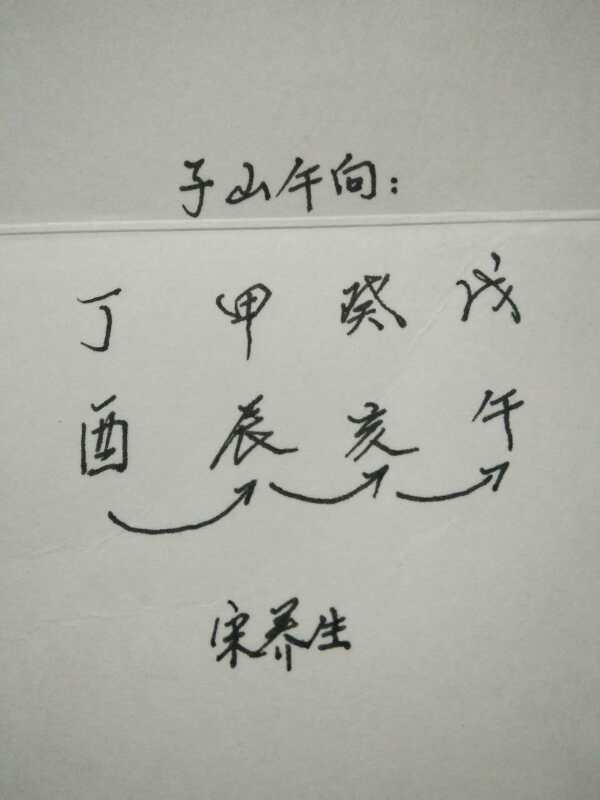 子山午向：
丁 甲 癸 戊
酉 辰 亥 午
宋养生